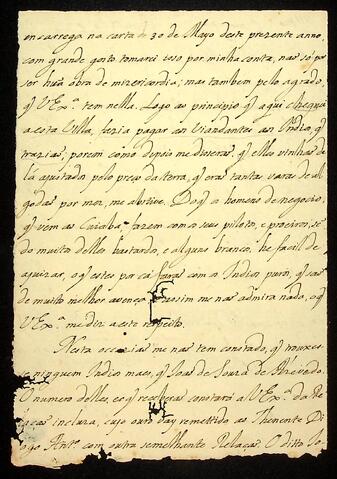 encarrega na carta de 30 de Mayo deste prezente anno,
com grande gosto tomarei isso por minha conta, naõ só por
ser huã obra de mizericordia; mas tambem pelo agrado,
q̃ V Exª. tem nella. Logo ao principio q̃ aqui cheguei
a esta Villa, fazia pagar aos Viandantes aos Indios, q̃
traziaõ; porem como depois me disseraõ, q̃ elles vinhaõ de
lá ajustados pelo preço da terra, q̃ eraõ tantas varas de al
godaõ por mez, me abstive. Do q̃ os homens de negocio,
q̃ vem ao Cuiabá, fazem com os seus pilotos, e proeiros, sẽ
do muitos delles bastardos, e alguns brancos, he facil de
ajuizar, o q̃ estes por cá faraõ com os Indios puros, q̃ saõ
de muito melhor avença, e assim me naõ admira nada, o q̃
V Exª. me diz a este respeito.
Nesta occaziaõ me naõ tem constado, q̃ trouxes
se ninguem Indios mais, q̃ Joaõ de Souza de Azevedo.
O numero delles, e o q̃ receberaõ constará a V Exª. da Re
laçaõ incluza, cujo ouro day remettido ao Thenente Di
ogo Antº. com outra semelhante Relaçaõ. O ditto Jo